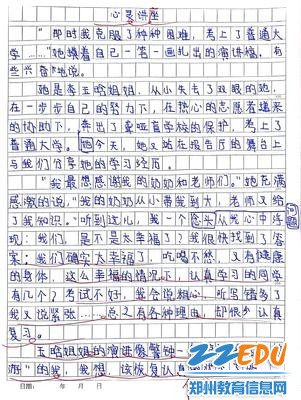 心灵讲座
"那时我克服了种种困难，考上了普通大
学……"她摸着自己一笔一画扎出的演讲稿，有
些兴奋地说。
"她是李玉晗姐姐，从小失去了双眼的她，
在一步步自己的努力下，在热心的志愿者递来
的协助下，奔出了聋哑盲学校的保护，考上了
普通大学。今天，她又站在报告厅的舞台上
与我们分享她的学习经历。
"我最想感谢我的奶奶和老师们。"她充满
感激的说，"我的奶奶从小带我到大，老师又给
了我知识。"听到这儿，我一个念头从我心中浮
现：我们，是不是太幸福了？我很快找到了答
案：我们确实太幸福了，吃喝不愁，又有健康
的身体，这么幸福的情况下，认真学习的同学
有几个？考试不好，我会说粗心，听写错多了
我又说紧张……总之有各种理由，却很少认真
复习。
玉晗姐姐的演讲像警钟
的我，我想，该恢复认真
日期： 年 月 日
ZZEDU
郑州教育信息网